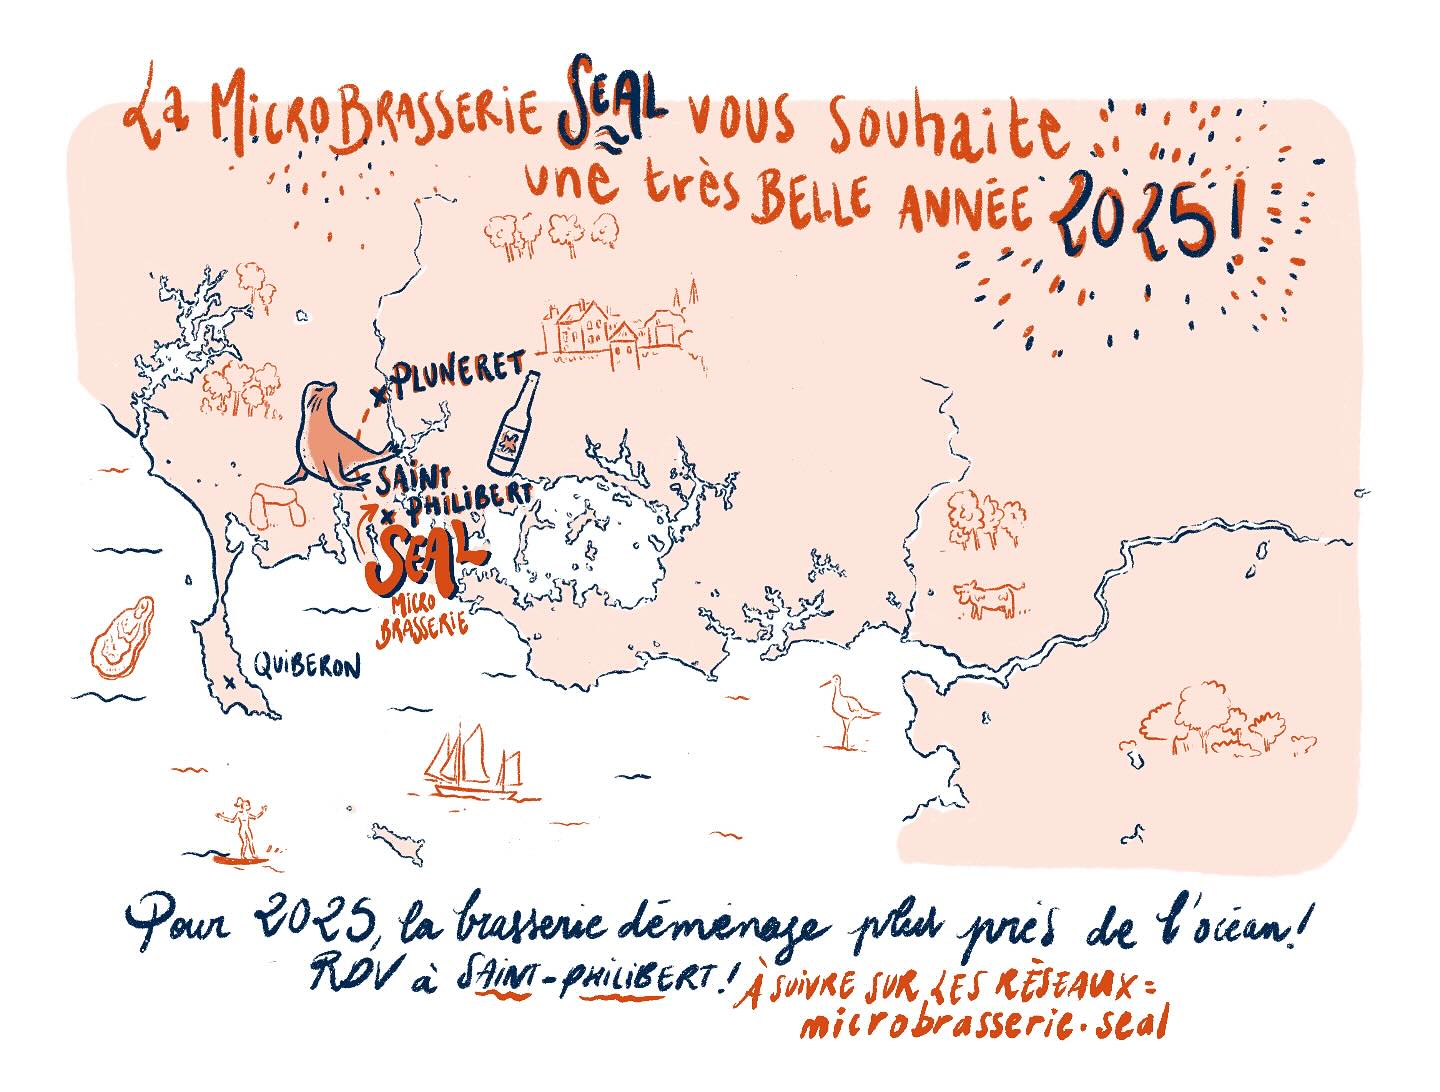 La MicroBrasserie SEAL vous souhaite
une très BELLE ANNÉE 2025!
PLUNERET
SAINT
PHILIBERT
SEAL
MICRO
BRASSERIE
QUIBERON
Pour 2025, la brasserie déménage plus près de l'océan!
RDV à SAINT-PHILIBERT!
À SUIVRE SUR LES RÉSEAUX =
microbrasserie.seal